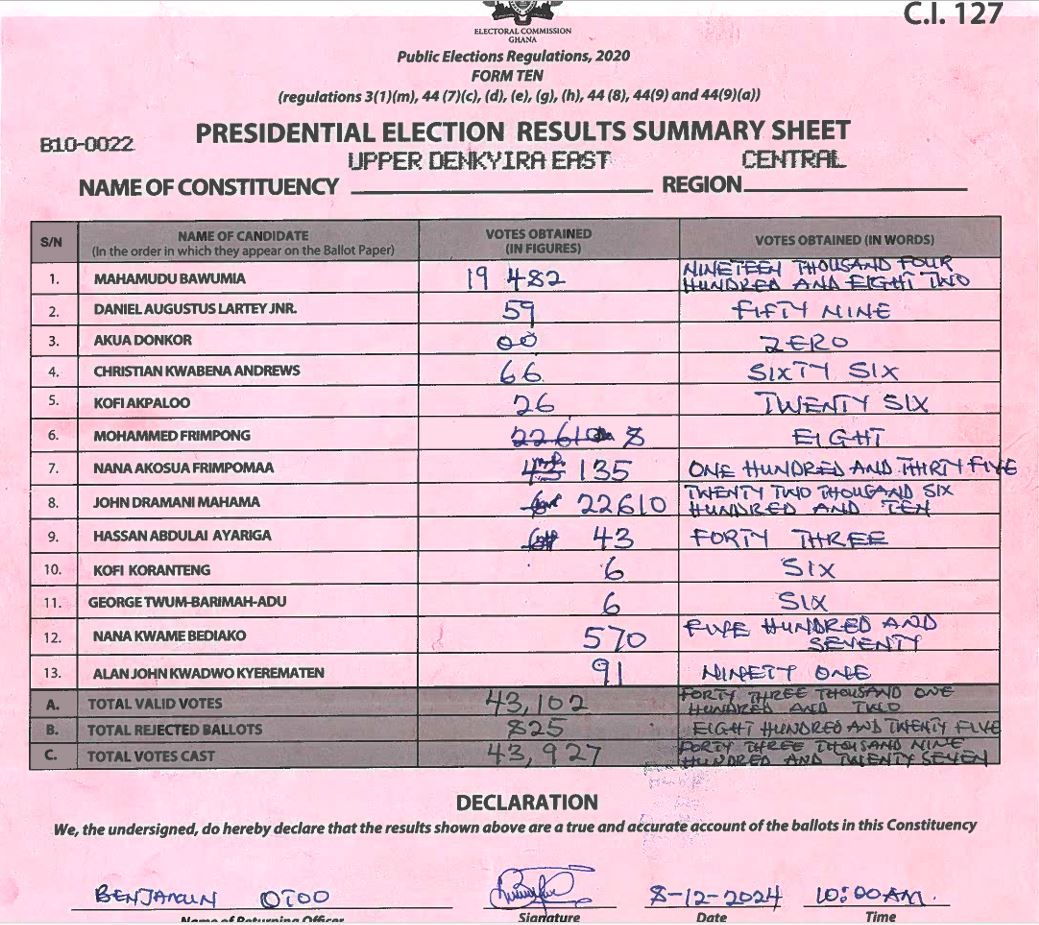 C.I. 127
ELECTORAL COMMISSION
GHANA
Public Elections Regulations, 2020
FORM TEN
(regulations 3(1)(m), 44 (7)(c), (d), (e), (g), (h), 44 (8), 44(9) and 44(9)(a))
B10-0022
PRESIDENTIAL ELECTION RESULTS SUMMARY SHEET
UPPER DENKYIRA EAST CENTRAL
NAME OF CONSTITUENCY REGION
S/N NAME OF CANDIDATE (In the order in which they appear on the Ballot Paper) VOTES OBTAINED (IN FIGURES) VOTES OBTAINED (IN WORDS)
1. MAHAMUDU BAWUMIA 19 482 NINETEEN THOUSAND FOUR HUNDRED AND EIGHT TWO
2. DANIEL AUGUSTUS LARTEY JNR. 59 FIFTY NINE
3. AKUA DONKOR 00 ZERO
4. CHRISTIAN KWABENA ANDREWS 66 SIXTY SIX
5. KOFI AKPALOO 26 TWENTY SIX
6. MOHAMMED FRIMPONG 22610 8 EIGHT
7. NANA AKOSUA FRIMPOMAA 135 ONE HUNDRED AND THIRTY FIVE
8. JOHN DRAMANI MAHAMA 22610 TWENTY TWO THOUSAND SIX HUNDRED AND TEN
9. HASSAN ABDULAI AYARIGA 43 FORTY THREE
10. KOFI KORANTENG 6 SIX
11. GEORGE TWUM-BARIMAH-ADU 6 SIX
12. NANA KWAME BEDIAKO 570 FIVE HUNDRED AND SEVENTY
13. ALAN JOHN KWADWO KYEREMATEN 91 NINETY ONE
A. TOTAL VALID VOTES 43,102 FORTY THREE THOUSAND ONE HUNDRED AND TWO
B. TOTAL REJECTED BALLOTS 825 EIGHT HUNDRED AND TWENTY FIVE
C. TOTAL VOTES CAST 43,927 FORTY THREE THOUSAND NINE HUNDRED AND TWENTY SEVEN
DECLARATION
We, the undersigned, do hereby declare that the results shown above are a true and accurate account of the ballots in this Constituency
BENJAMIN OTOO 8-12-2024 10:00AM.
Name of Returning Officer Signature Date Time